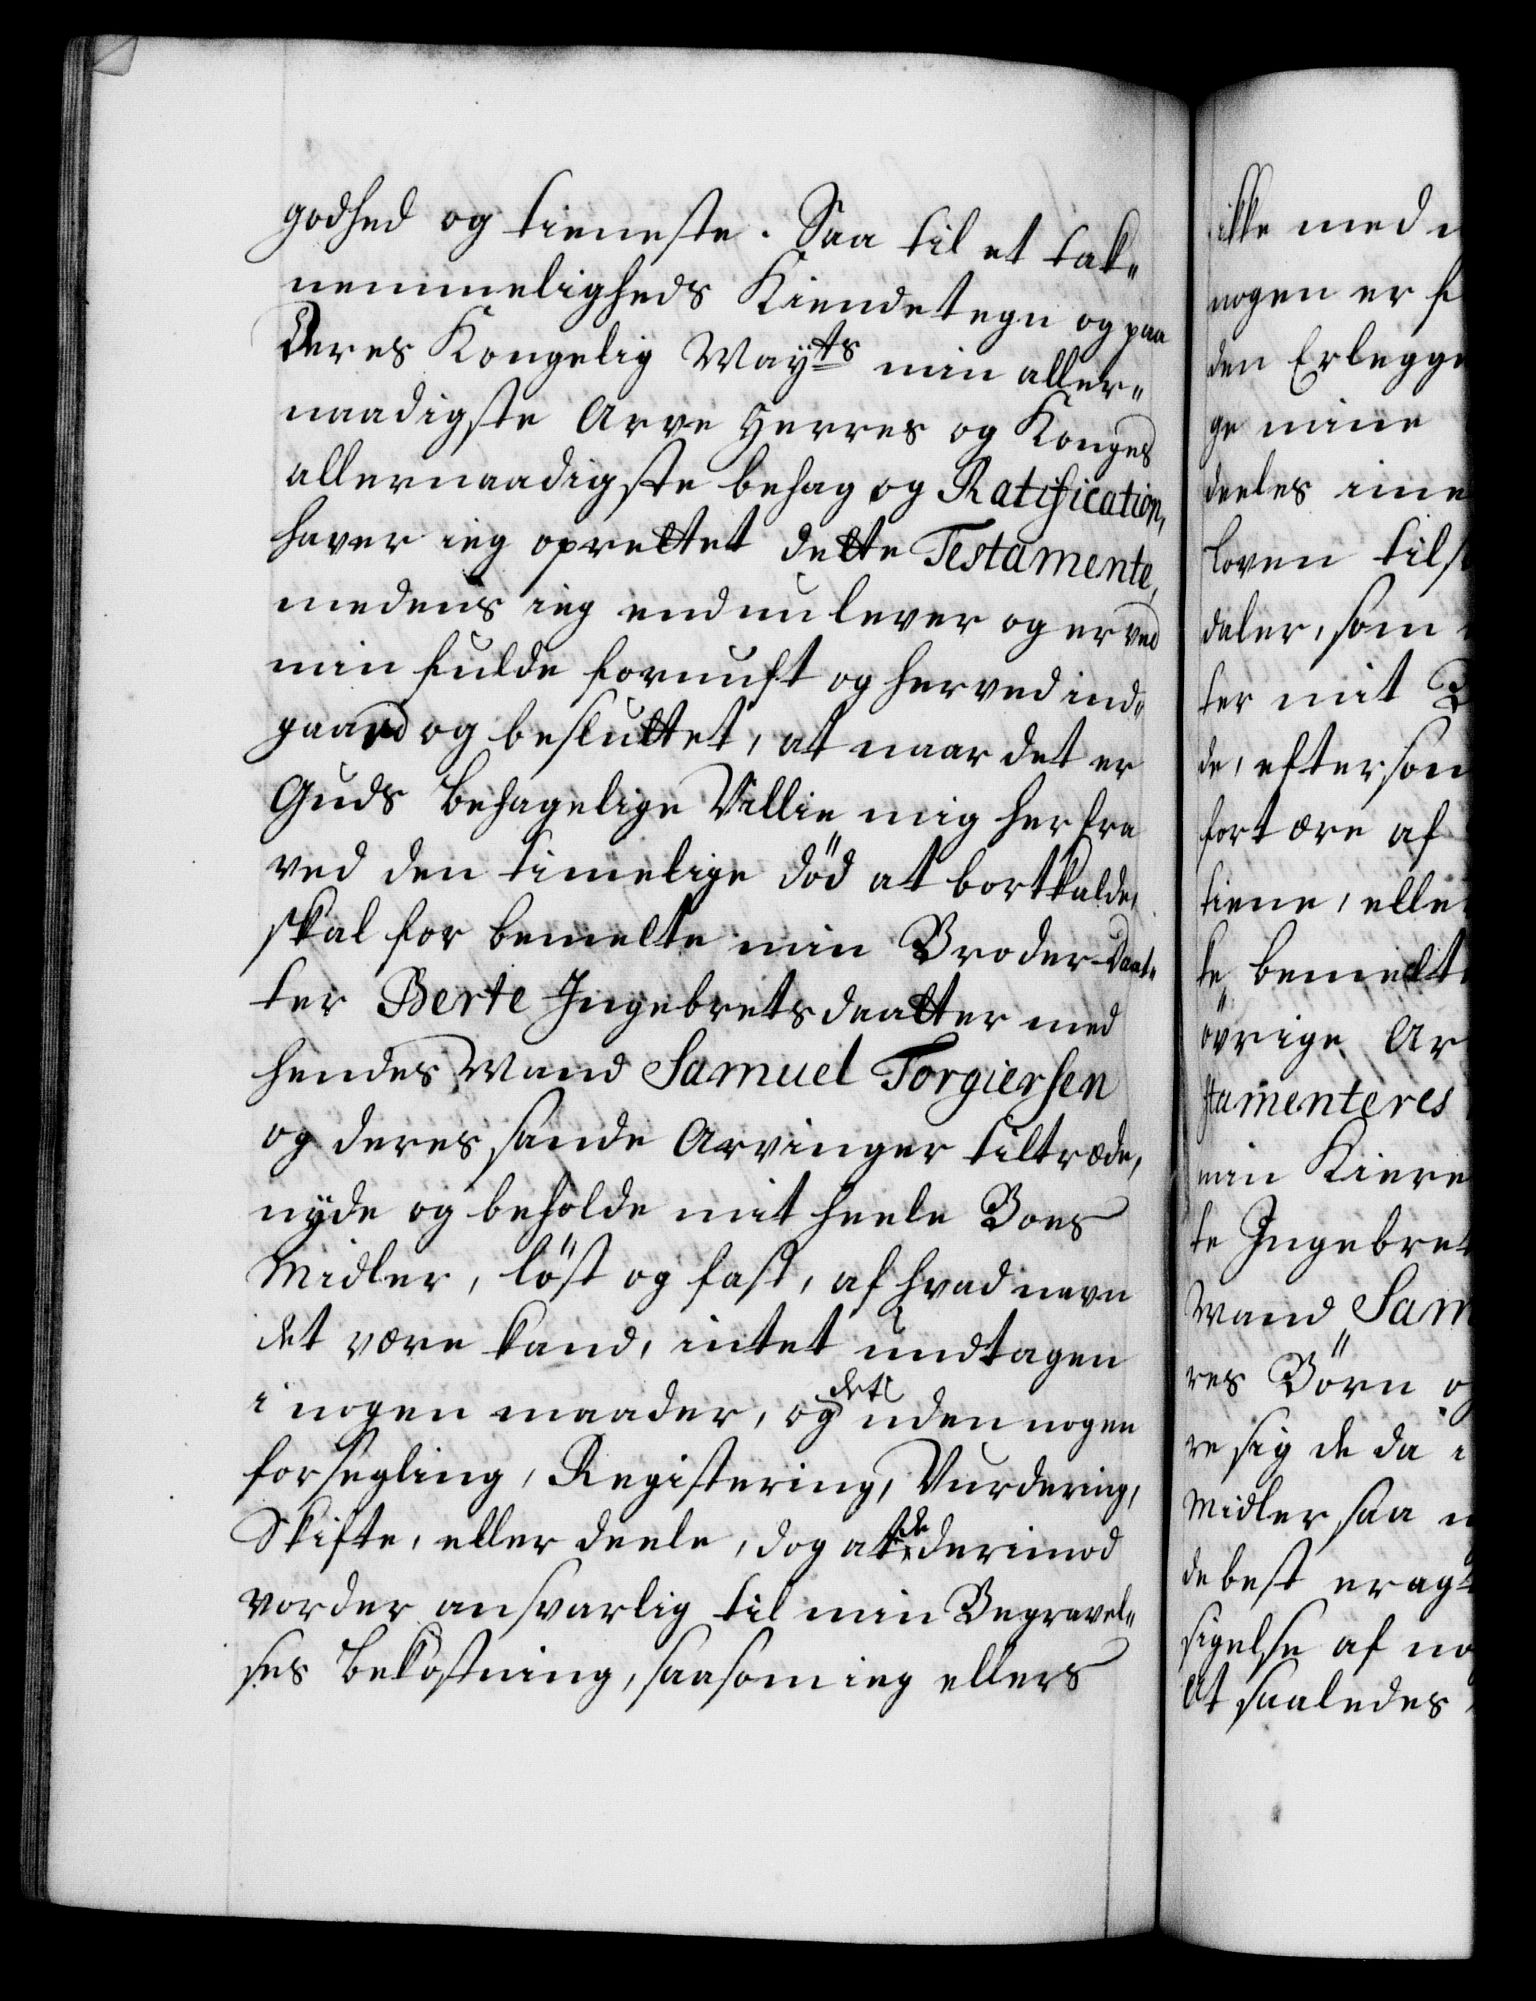 godhed og tieneste. Saa til et tak„
nemmeligheds Kiendetegn og paa
Deres Kongelig May<u>ts</u> min aller„
naadigste Arve Herres og Konges
allernaadigste behag og Ratification,
haver ieg oprettet dette Testamente,
medens ieg endnu lever og er ved
min fulde fornuft og herved ind„
gaaed og besluttet, at naar det er
Guds behagelige Villie mig herfra
ved den timelige död at bortkalde,
skal for bemelte min Broder-Daat„
ter Berte Ingebretsdaatter med
hendes Mand Samuel Torgiersen
og deres sande Arvinger tiltræde,
nyde og beholde mit heele Boes
Midler, löst og fast, af hvad navn
det være kand, intet undtagen
i nogen maader, og det uden nogen
forsegling, Registering, Vurdering,
Skifte, eller deele, dog at de derimod
vorder ansvarlig til min Begravel„
ses bekostning, saasom ieg ellers
ikke med
nogen er
den Erlegge
ge mine
deeles ime
Loven tils
daler, som
ter mit
de, efterson
fortære af
tiene, elle
te bemelt
övrige Ar
stamenteres
min Kiere
te Ingebret
Mand Sam
res Börn o
re sig de da i
Midler saa
de best eragt
sigelse af no
At saaledes